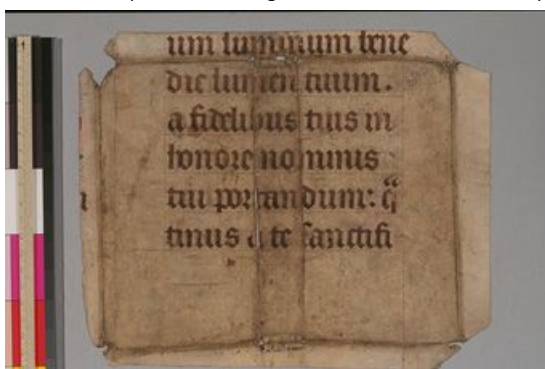 um luminum bene
dic lumen tuum.
a fidelibus tuis in
honore nominis
tui portandum: qͣ
tinus a te sanctifi